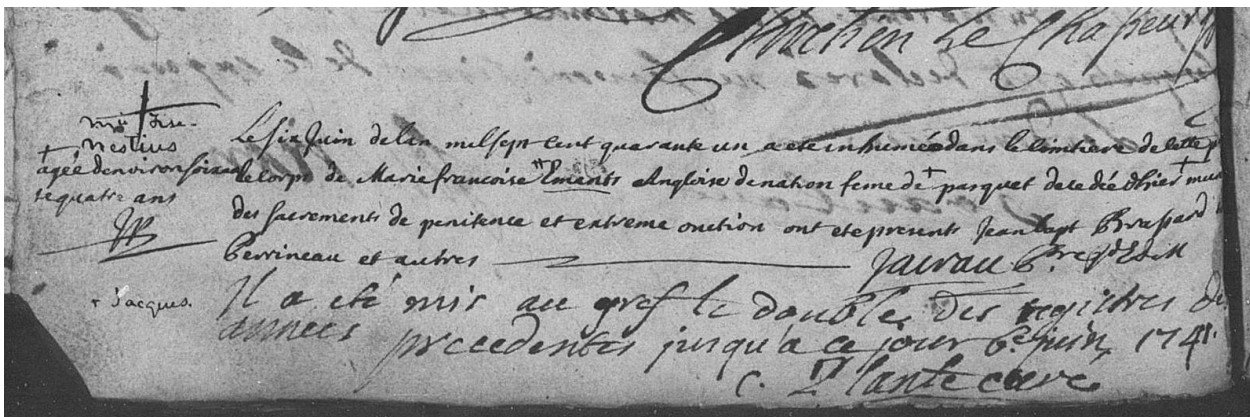 Le Chasseur
mrie frse
nestius
+ agée denviron soixan
te quatre ans
Le six Juin de lan mil sept cent quarante un a ete inhumé dans le Cimtiere de cette
le corps de Marie francoise Emants Angloise de nation feme de + parquet decedée d'hier mu
des sacrements de penitence et extreme onction ont ete presents Jean bapt Brassard
Perrineau et autres
+ Jacques.
Il a eté mis au gref le double des registres de
années precedentes jusqu'a ce jour 6e juin 1741.
C. Plante curé